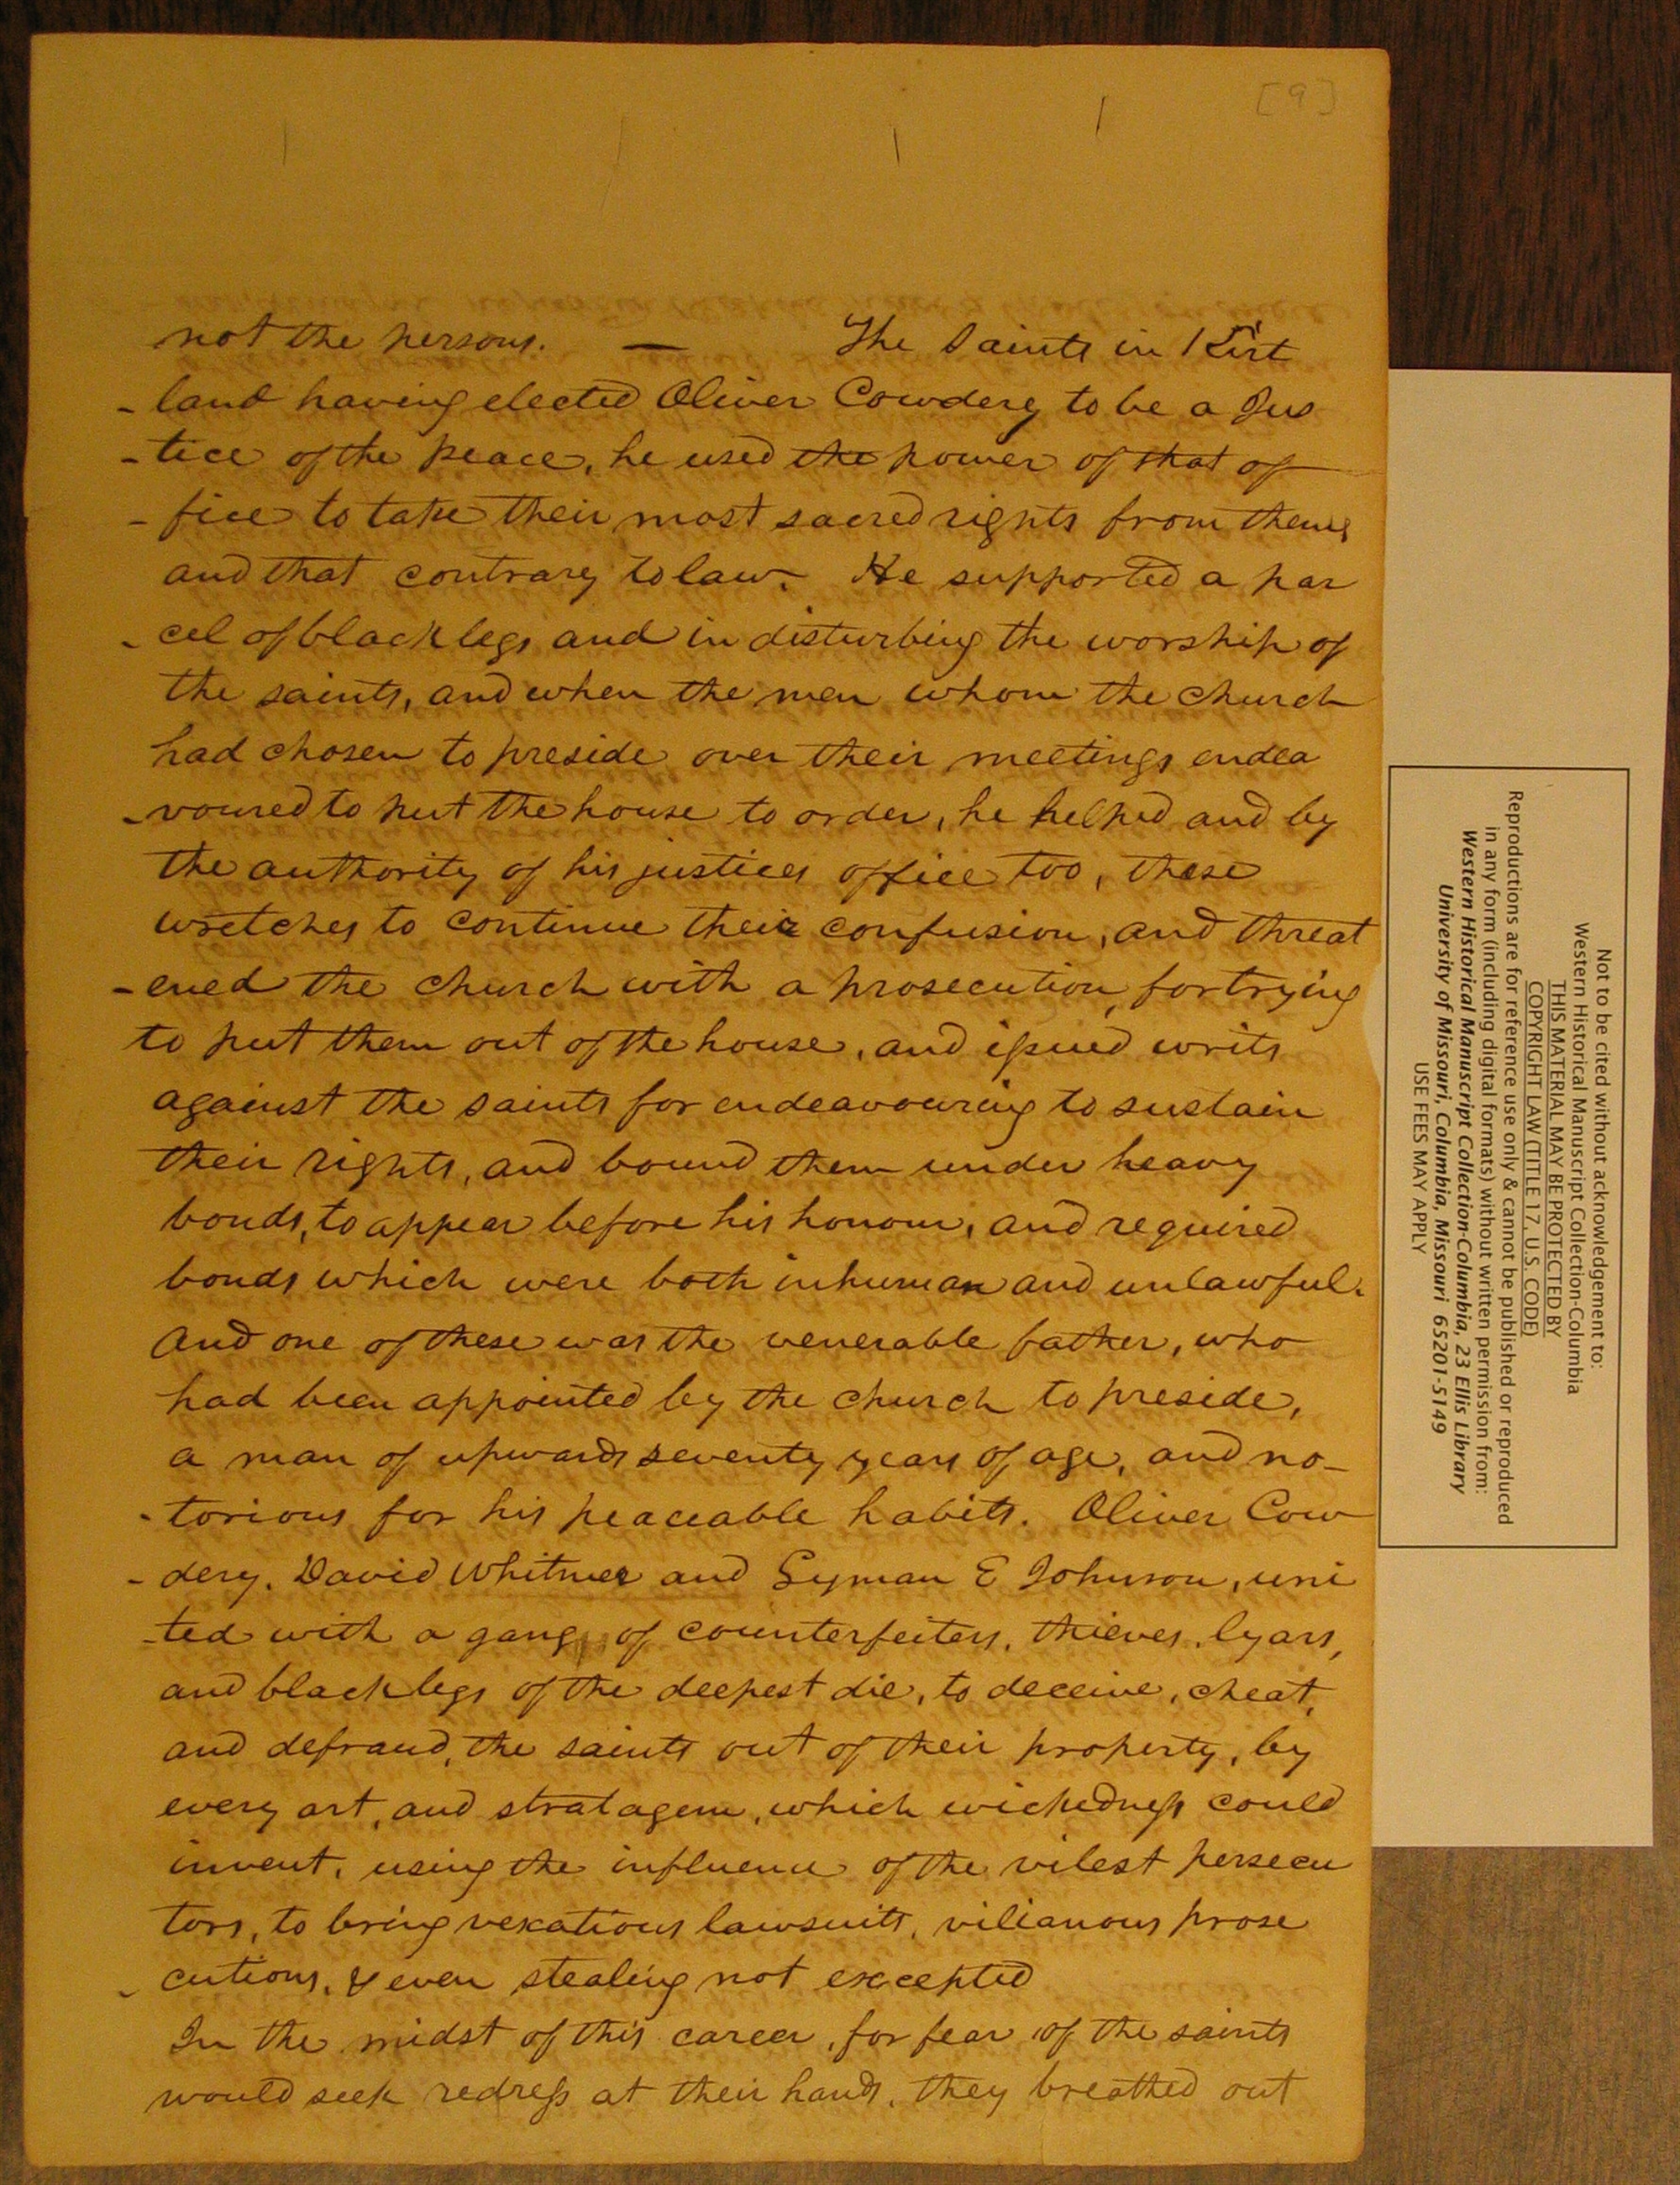 [9]
not the persons. — The Saints in Kirt
- land having elected Oliver Cowdery to be a Jus
- tice of the peace, he used the power of that of
- fice to take their most sacred rights from them,
and that contrary to law. He supported a par
- cel of blacklegs and in disturbing the worship of
the saints, and when the men whom the church
had chosen to preside over their meetings endea
- voured to put the house to order, he helped and by
the authority of his justices office too, these
wretches to continue their confusion, and threat
- ened the church with a prosecution, for trying
to put them out of the house, and issued writs
against the saints for endeavouring to sustain
their rights, and bound them under heavy
bonds, to appear before his honour, and required
bonds which were both inhuman and unlawful.
And one of these was the venerable father, who
had been appointed by the church to preside,
a man of upwards seventy years of age, and no-
- torious for his peaceable habits. Oliver Cow
- dery, David Whitmer and Lyman E Johnson, uni
- ted with a gang of counterfeiters, thieves, lyars,
and blacklegs of the deepest die, to deceive, cheat,
and defraud, the saints out of their property, by
every art, and stratagem, which wickedness could
invent, using the influence of the vilest persecu
tors, to bring vexatious lawsuits, vilianous prose
- cutions, & even stealing not excepted
In the midst of this career, for fear of the saints
would seek redress at their hands, they breathed out
Not to be cited without acknowledgement to:
Western Historical Manuscript Collection-Columbia
THIS MATERIAL MAY BE PROTECTED BY
COPYRIGHT LAW (TITLE 17, U.S. CODE)
Reproductions are for reference use only & cannot be published or reproduced
in any form (including digital formats) without written permission from:
Western Historical Manuscript Collection-Columbia, 23 Ellis Library
University of Missouri, Columbia, Missouri 65201-5149
USE FEES MAY APPLY